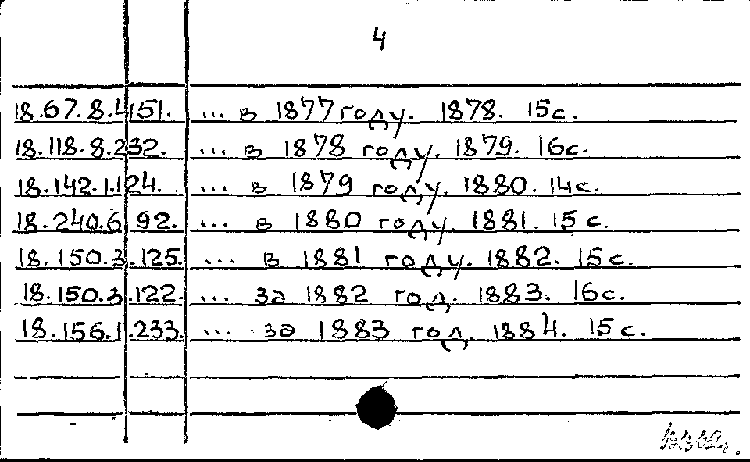 4
18.67.8.151. ... в 1877 году. 1878. 15с.
18.118.8.232. ... в 1878 году. 1879. 16с.
18.142.1.124. ... в 1879 году. 1880. 14с.
18.240.6.92. ... в 1880 году. 1881. 15с.
18.150.3.125. ... в 1881 году. 1882. 15с.
18.150.3.122. ... за 1882 год. 1883. 16с.
18.156.1.233. ... за 1883 год. 1884. 15с.